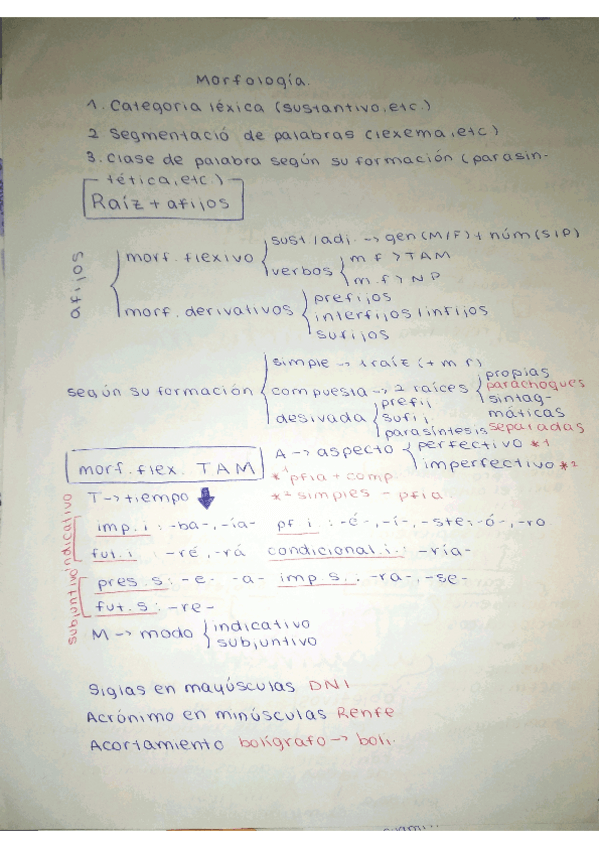 Morfología.
1. Categoría léxica (sustantivo, etc.)
2 Segmentació de palabras (lexema, etc)
3. Clase de palabra según su formación (parasin-
tética, etc.)
Raíz + afijos
afijos
morf. flexivo
sust./adj. → gen (M/F) + núm (S/P)
verbos
m f > TAM
m.f > NP
morf. derivativos
prefijos
interfijos / infijos
sufijos
según su formación
simple → 1 raíz (+ m f)
compuesta → 2 raíces
propias
parachoques
sintag-
máticas
separadas
derivada
prefij
sufij.
parasíntesis
morf. flex. TAM
A → aspecto
perfectivo *1
imperfectivo *2
*1 pfia + comp.
*2 simples - pfia
T → tiempo
indicativo
imp. i : -ba-, -ía- pf i : -é-, -í-, -ste-, -ó-, -ro
fut. i : -ré, -rá condicional. i. : -ría-
subjuntivo
pres. s : -e- -a- imp. s. : -ra-, -se-
fut. s : -re-
M → modo
indicativo
subjuntivo
Siglas en mayúsculas DNI
Acrónimo en minúsculas Renfe
Acortamiento bolígrafo → boli.